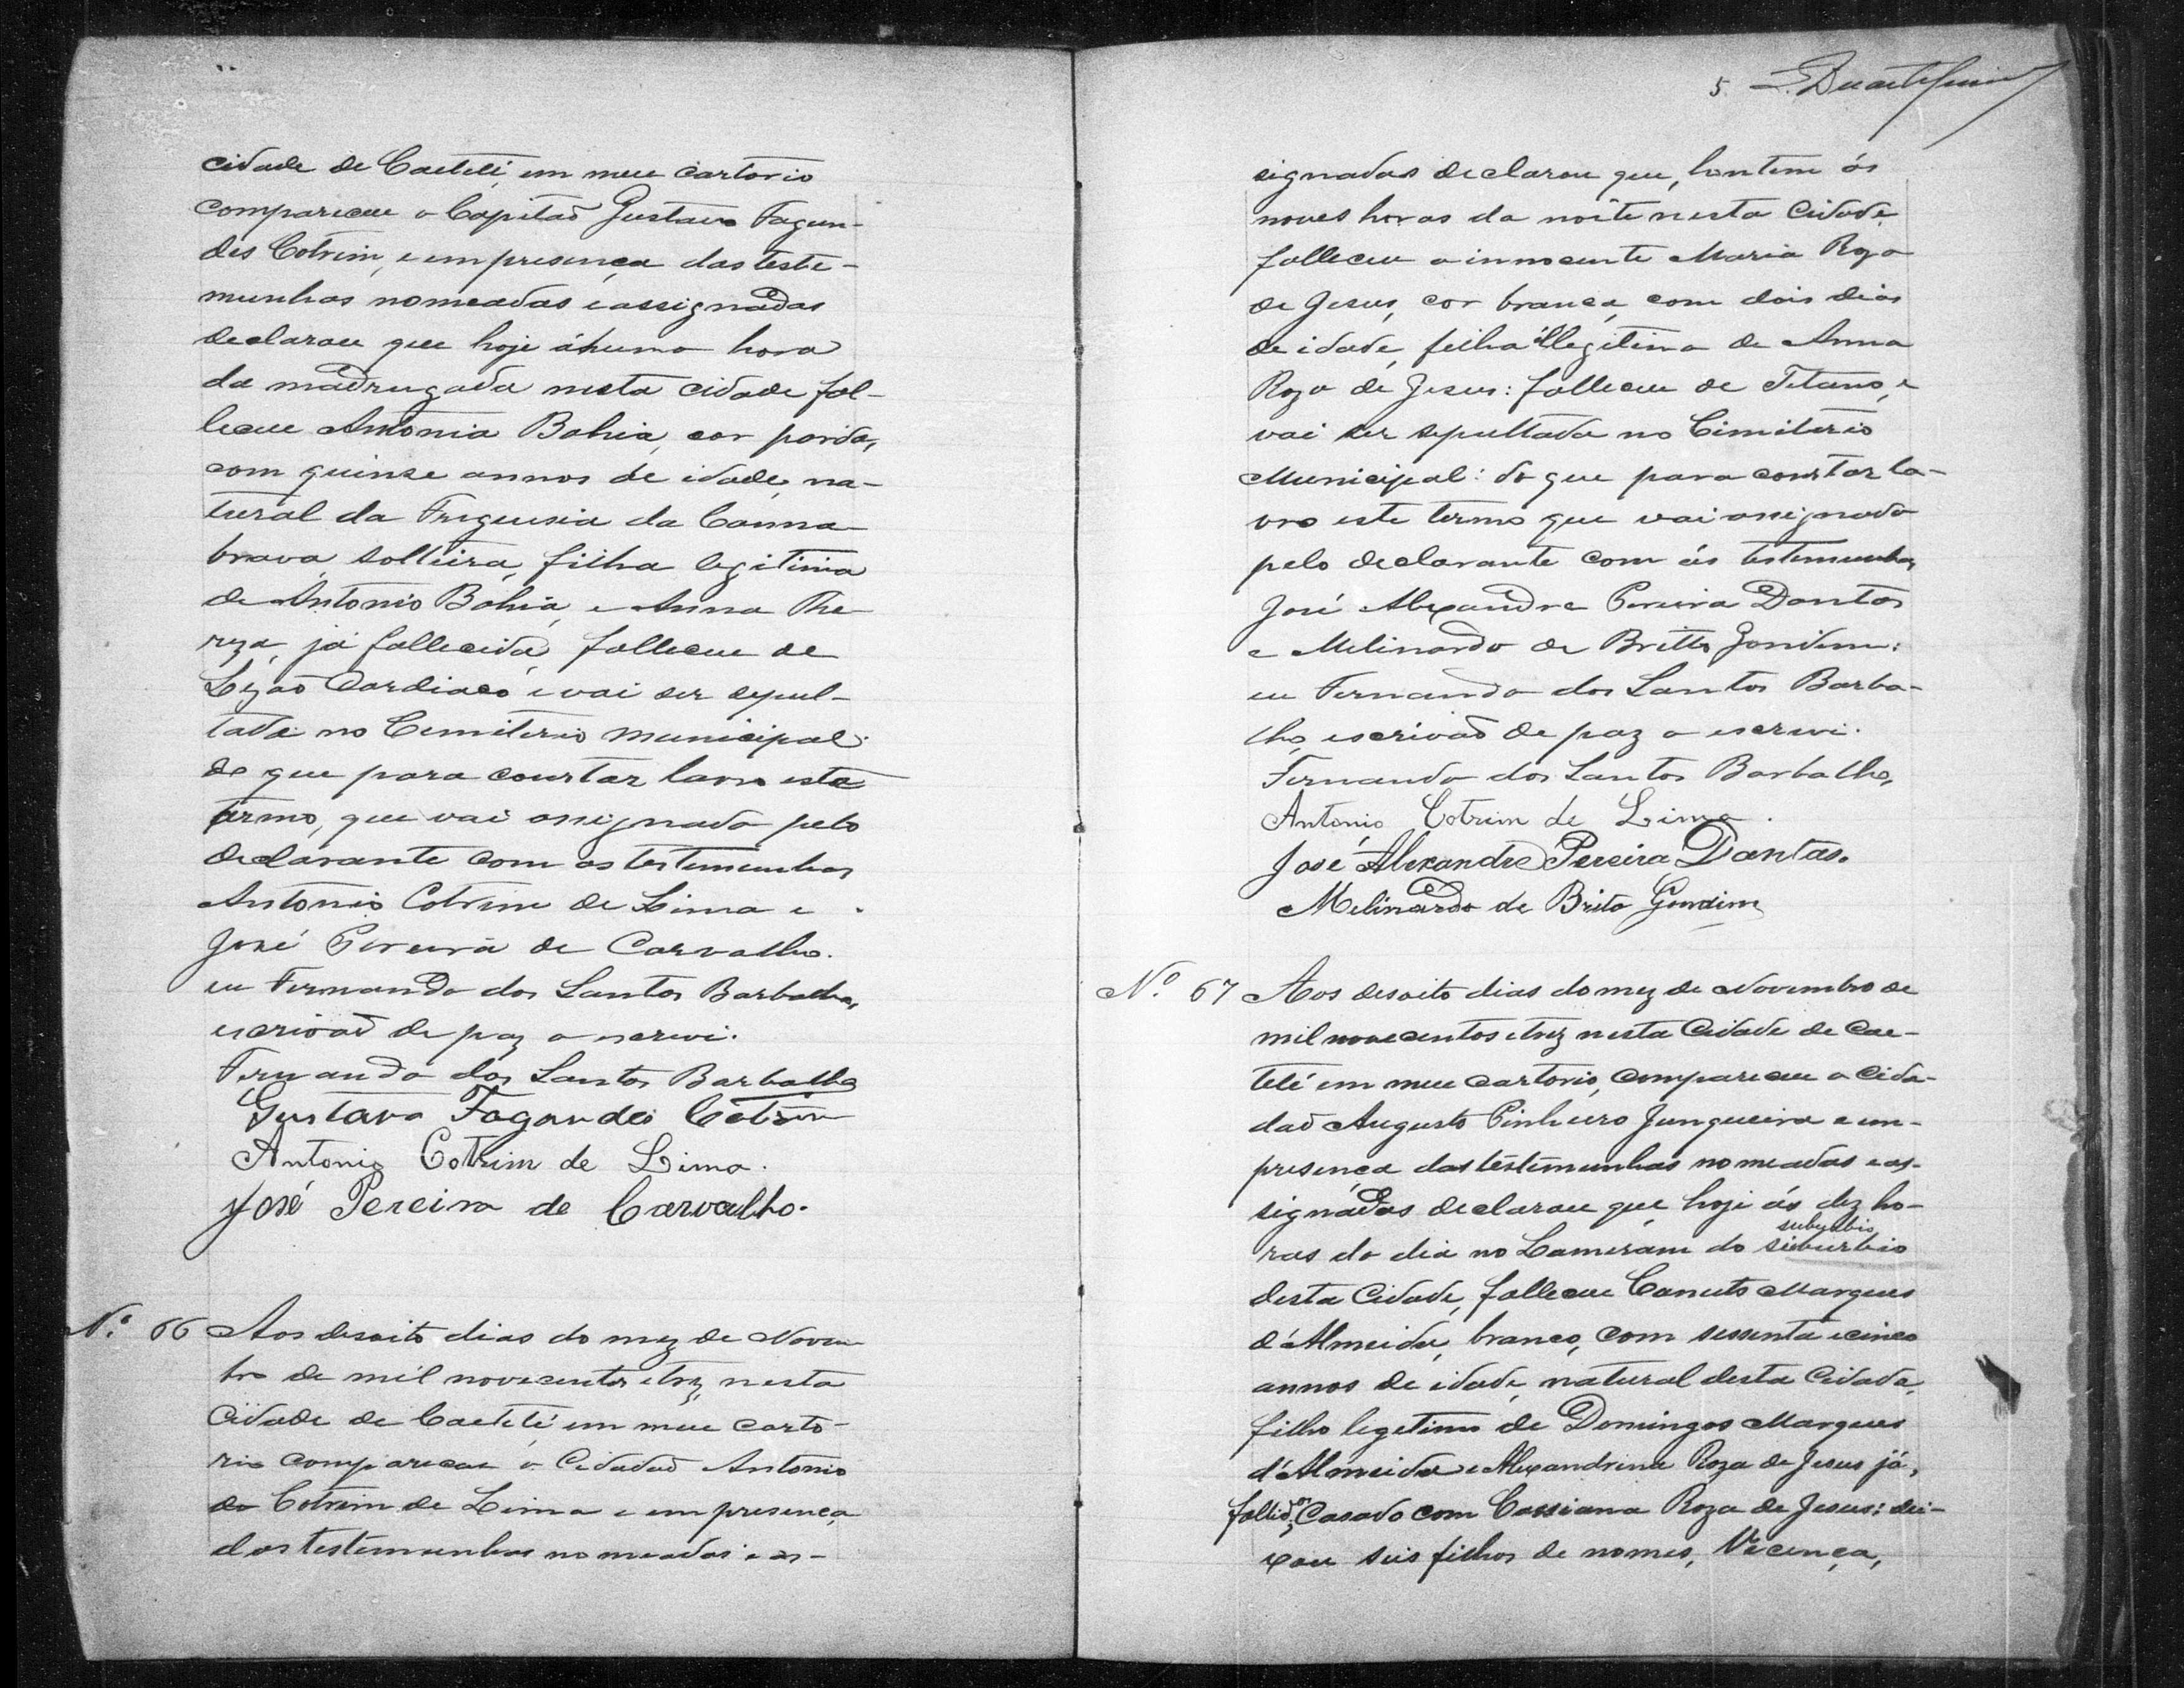 cidade de Caeteté, em meu cartorio
compareceu o Capitaõ Gustavo Fagun-
des Cotrim, e em presença das teste-
munhas nomeadas e assignadas
declarou que hoje á huma hora
da madrugada nesta cidade fal-
leceu Antonia Bahia, cor parda,
com quinse annos de idade, na-
tural da Freguesia da Canna
brava, solteira, filha legitima
de Antonio Bahia, e Anna The-
reza, já fallecida, falleceu de
Lezaõ Cardiaca e vai ser sepul-
tada no Cemiterio municipal:
do que para constar lavro este
termo, que vai assignado pelo
declarante com as testemunhas
Antonio Cotrim de Lima e
José Pereira de Carvalho.
eu Fernando dos Santos Barbalho,
escrivaõ de paz o escrevi.
Fernando dos Santos Barbalho
Gustavo Fagundes Cotrim
Antonio Cotrim de Lima.
José Pereira de Carvalho.
Nº. 66 Aos desoito dias do mez de Novem
bro de mil novecentos e trez, nesta
Cidade de Caeteté em meu carto-
rio compareceu o Cidadaõ Antonio
de Cotrim de Lima e em presença
das testemunhas nomeadas e as-
5.
signadas declarou que, hontem ás
noves horas da noite nesta Cidade
falleceu a innocente Maria Roza
de Jesus, cor branca, com dois dias
de idade, filha illegitima de Anna
Roza de Jesus: falleceu de Tetano, e
vai ser sepultada no Cimiterio
Municipal: do que para constar la-
vro este termo que vai assignado
pelo declarante com ás testemunhas
José Alexandre Pereira Dantas
e Melinardo de Britto Gondim:
eu Fernando dos Santos Barba-
lho, escrivaõ de paz o escrevi.
Fernando dos Santos Barbalho,
Antonio Cotrim de Lima.
José Alexandre Pereira Dantas.
Melinardo de Brito Gondim
Nº. 67 Aos desoito dias do mez de Novembro de
mil novecentos e trez nesta Cidade de Cae-
teté em meu cartorio, compareceu o Cida-
daõ Augusto Pinheiro Junqueira e em-
presença das testemunhas nomeadas e as-
signadas declarou que hoje ás dez ho-
suburbio
ras do dia no Lameram do suburbio
desta Cidade, falleceu Canuto Marques
d'Almeida, branco, com sessenta e cinco
annos de idade, natural desta Cidade,
filho legetimo de Domingos Marques
d'Almeida e Alexandrina Roza de Jesus já,
fallidos, Casado com Cassiana Roza de Jesus: dei-
xou seis filhos de nomes, Vicença,